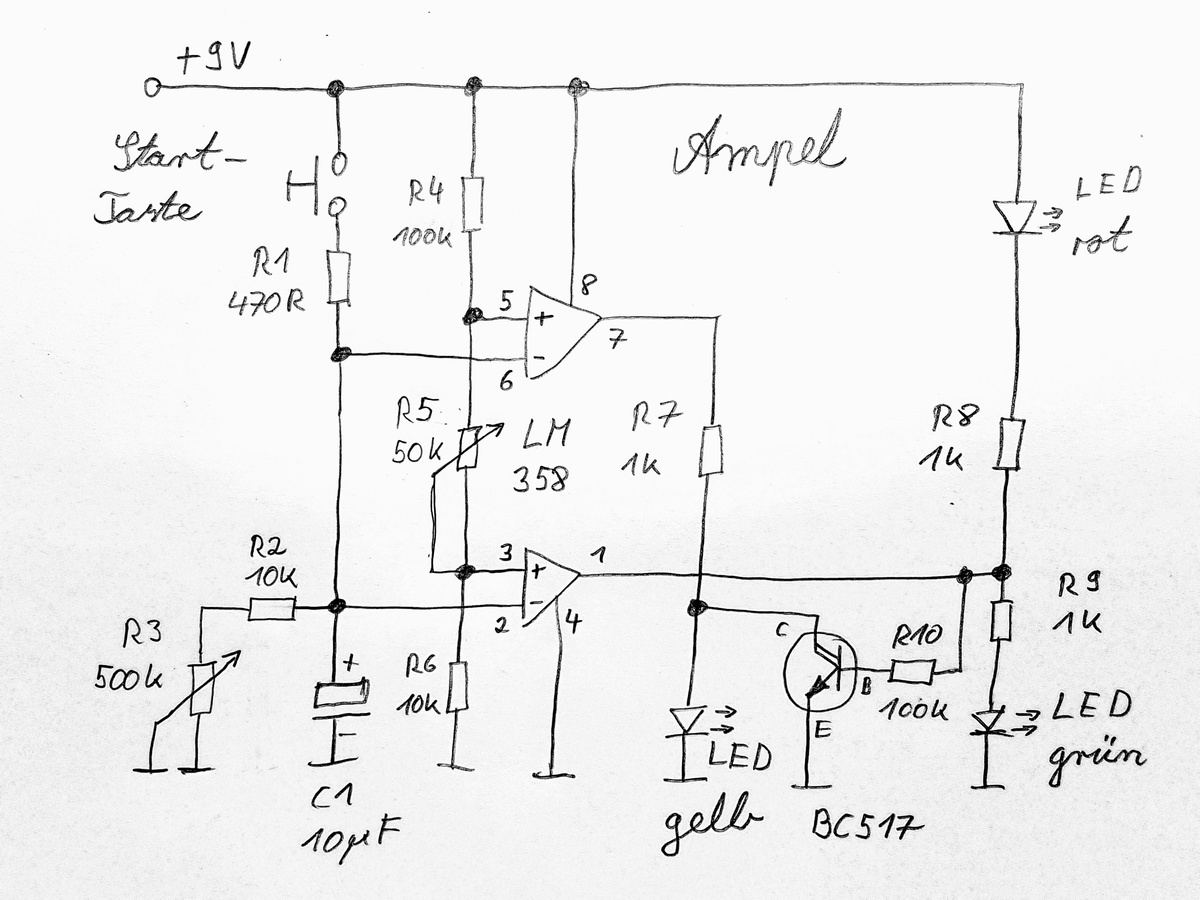 +9V
Ampel
Start-
Taste
R4
100k
LED
rot
R1
470R
5
+
8
7
-
6
R5
50k
LM
358
R7
1k
R8
1k
R2
10k
3
+
1
-
2
4
R3
500k
+
-
R6
10k
C
B
E
R10
100k
R9
1k
LED
gelb
LED
grün
C1
10µF
BC517